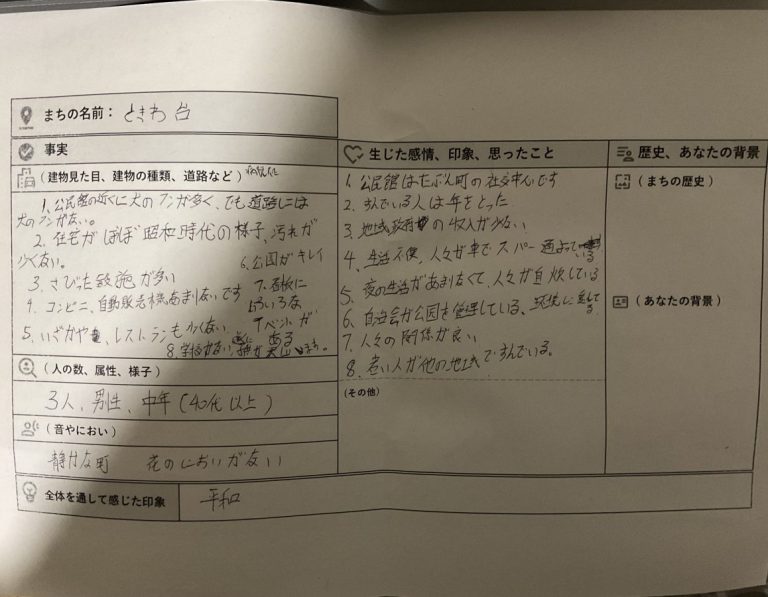 まちの名前： ときわ台
事実
(建物見た目、建物の種類、道路など)
1. 公民館の近くに犬のフンが多く、でも道路には
犬のフンがない。
2. 住宅がほぼ昭和時代の様子、汚れが
少くない。
3. さびった致施が多い
4. コンビニ、自動販売機あまりないです
5. いざかや、レストランも少くない
6. 公園がキレイ
7. 看板に
いろいろな
イベントが
ある
8. 学校がない
(人の数、属性、様子)
3人、男性、中年(40代以上)
(音やにおい)
静かな町 花のにおいがない
全体を通して感じた印象
平和
生じた感情、印象、思ったこと
1. 公民館はたぶん町の社交中心です
2. 住んでいる人は年をとった
3. 地域政府の収入が少ない
4. 生活不便、人々が車でスーパー通よっている
5. 夜の生活があまりなくて、人々が自炊している
6. 自治会が公園を管理している、環境に
7. 人々の関係が良い
8. 若い人が他の地域で住んでいる。
(その他)
歴史、あなたの背景
(まちの歴史)
(あなたの背景)